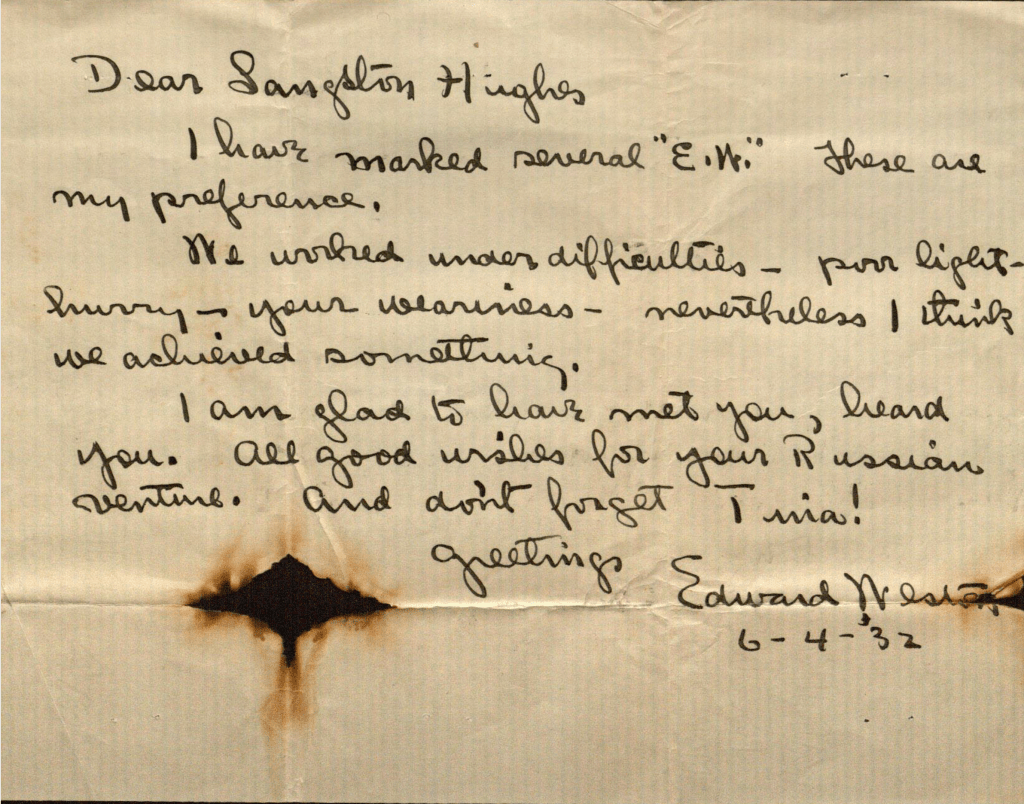 Dear Langston Hughes
I have marked several "E.W." These are
my preference.
We worked under difficulties – poor light –
hurry – your weariness – nevertheless I think
we achieved something.
I am glad to have met you, heard
you. All good wishes for your Russian
venture. And don't forget Tina!
Greetings
Edward Weston
6 - 4 - '32